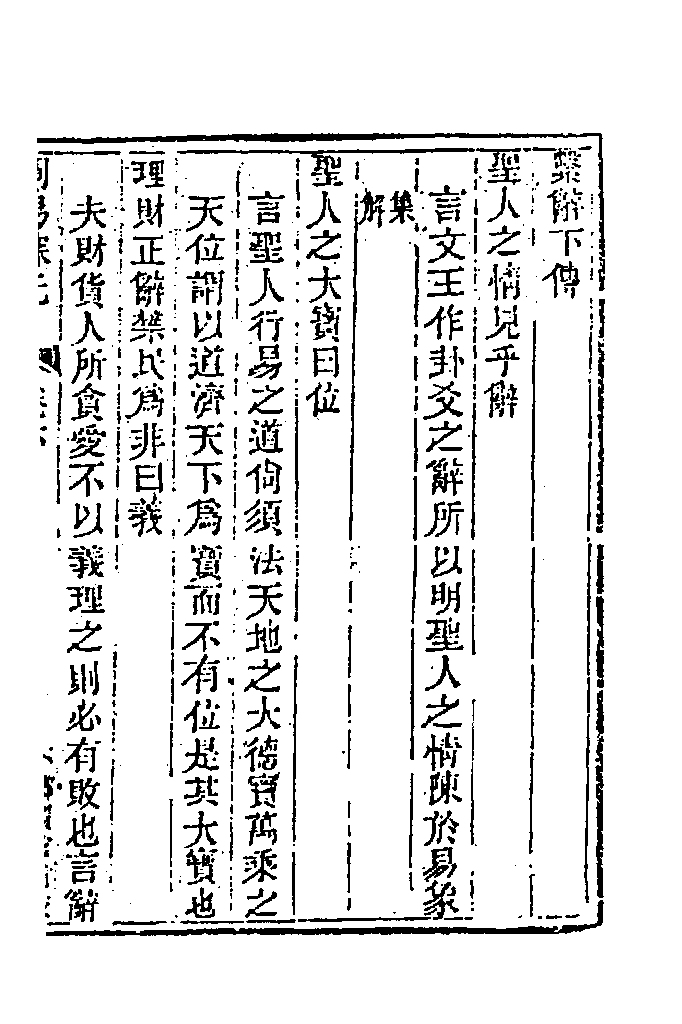 繫辭下傳
聖人之情見乎辭
言文王作卦爻之辭所以明聖人之情陳於易象
集解
聖人之大寶曰位
言聖人行易之道尙須法天地之大德寶萬乘之
天位謂以道濟天下爲寶而不有位是其大寶也
理財正辭禁民爲非曰義
夫財貨人所貪愛不以義理之則必有敗也言辭
周易探元